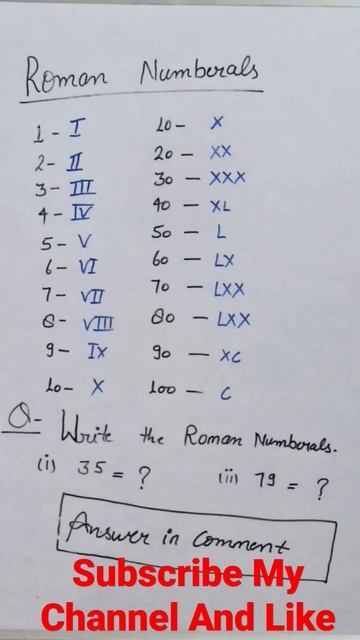 Roman Numberals
1 - I
2 - II
3 - III
4 - IV
5 - V
6 - VI
7 - VII
8 - VIII
9 - IX
10 - X
10 - X
20 - XX
30 - XXX
40 - XL
50 - L
60 - LX
70 - LXX
80 - LXX
90 - XC
100 - C
Q- Write the Roman Numberals.
(i) 35 = ? (ii) 79 = ?
Answer in comment
Subscribe My
Channel And Like